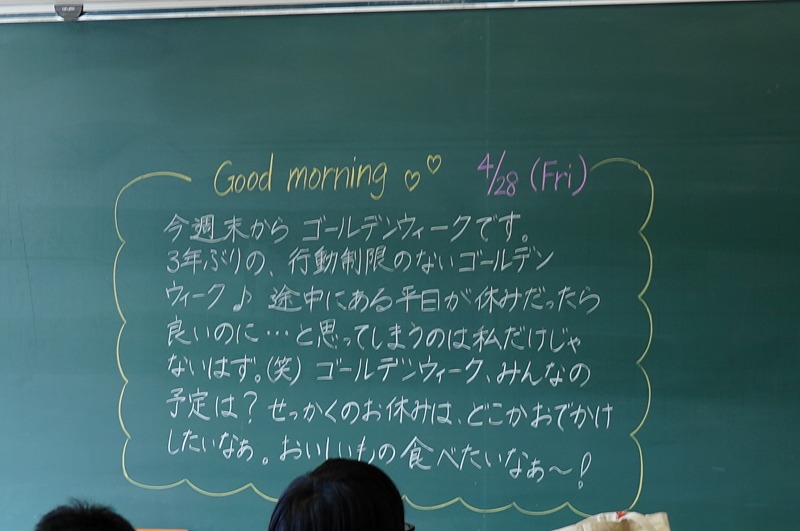 Good morning ♡♡ 4/28 (Fri)
今週末から ゴールデンウィークです。
3年ぶりの、行動制限のないゴールデン
ウィーク♪ 途中にある平日が休みだったら
良いのに…と思ってしまうのは私だけじゃ
ないはず。(笑) ゴールデンウィーク、みんなの
予定は？せっかくのお休みは、どこかおでかけ
したいなぁ。おいしいもの食べたいなぁ〜！